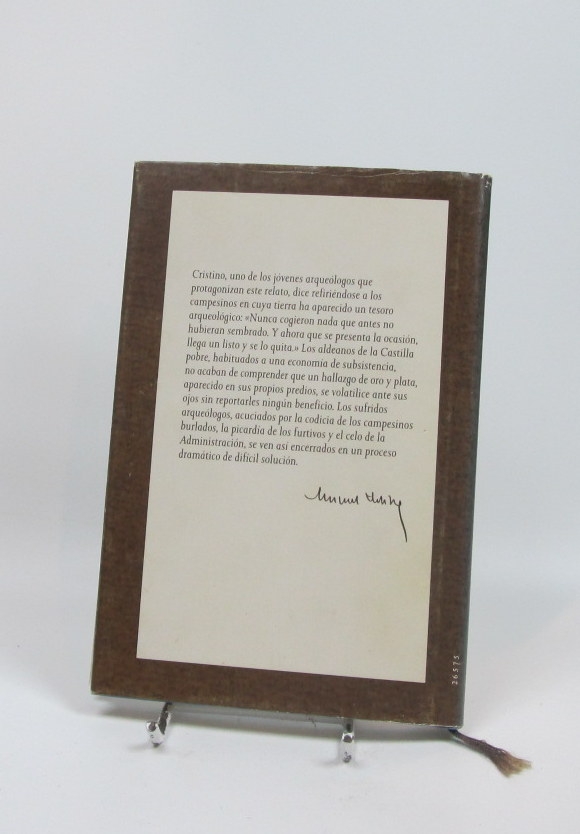 Cristino, uno de los jóvenes arqueólogos que
protagonizan este relato, dice refiriéndose a los
campesinos en cuya tierra ha aparecido un tesoro
arqueológico: «Nunca cogieron nada que antes no
hubieran sembrado. Y ahora que se presenta la ocasión,
llega un listo y se lo quita.» Los aldeanos de la Castilla
pobre, habituados a una economía de subsistencia,
no acaban de comprender que un hallazgo de oro y plata,
aparecido en sus propios predios, se volatilice ante sus
ojos sin reportarles ningún beneficio. Los sufridos
arqueólogos, acuciados por la codicia de los campesinos
burlados, la picardía de los furtivos y el celo de la
Administración, se ven así encerrados en un proceso
dramático de difícil solución.
26575